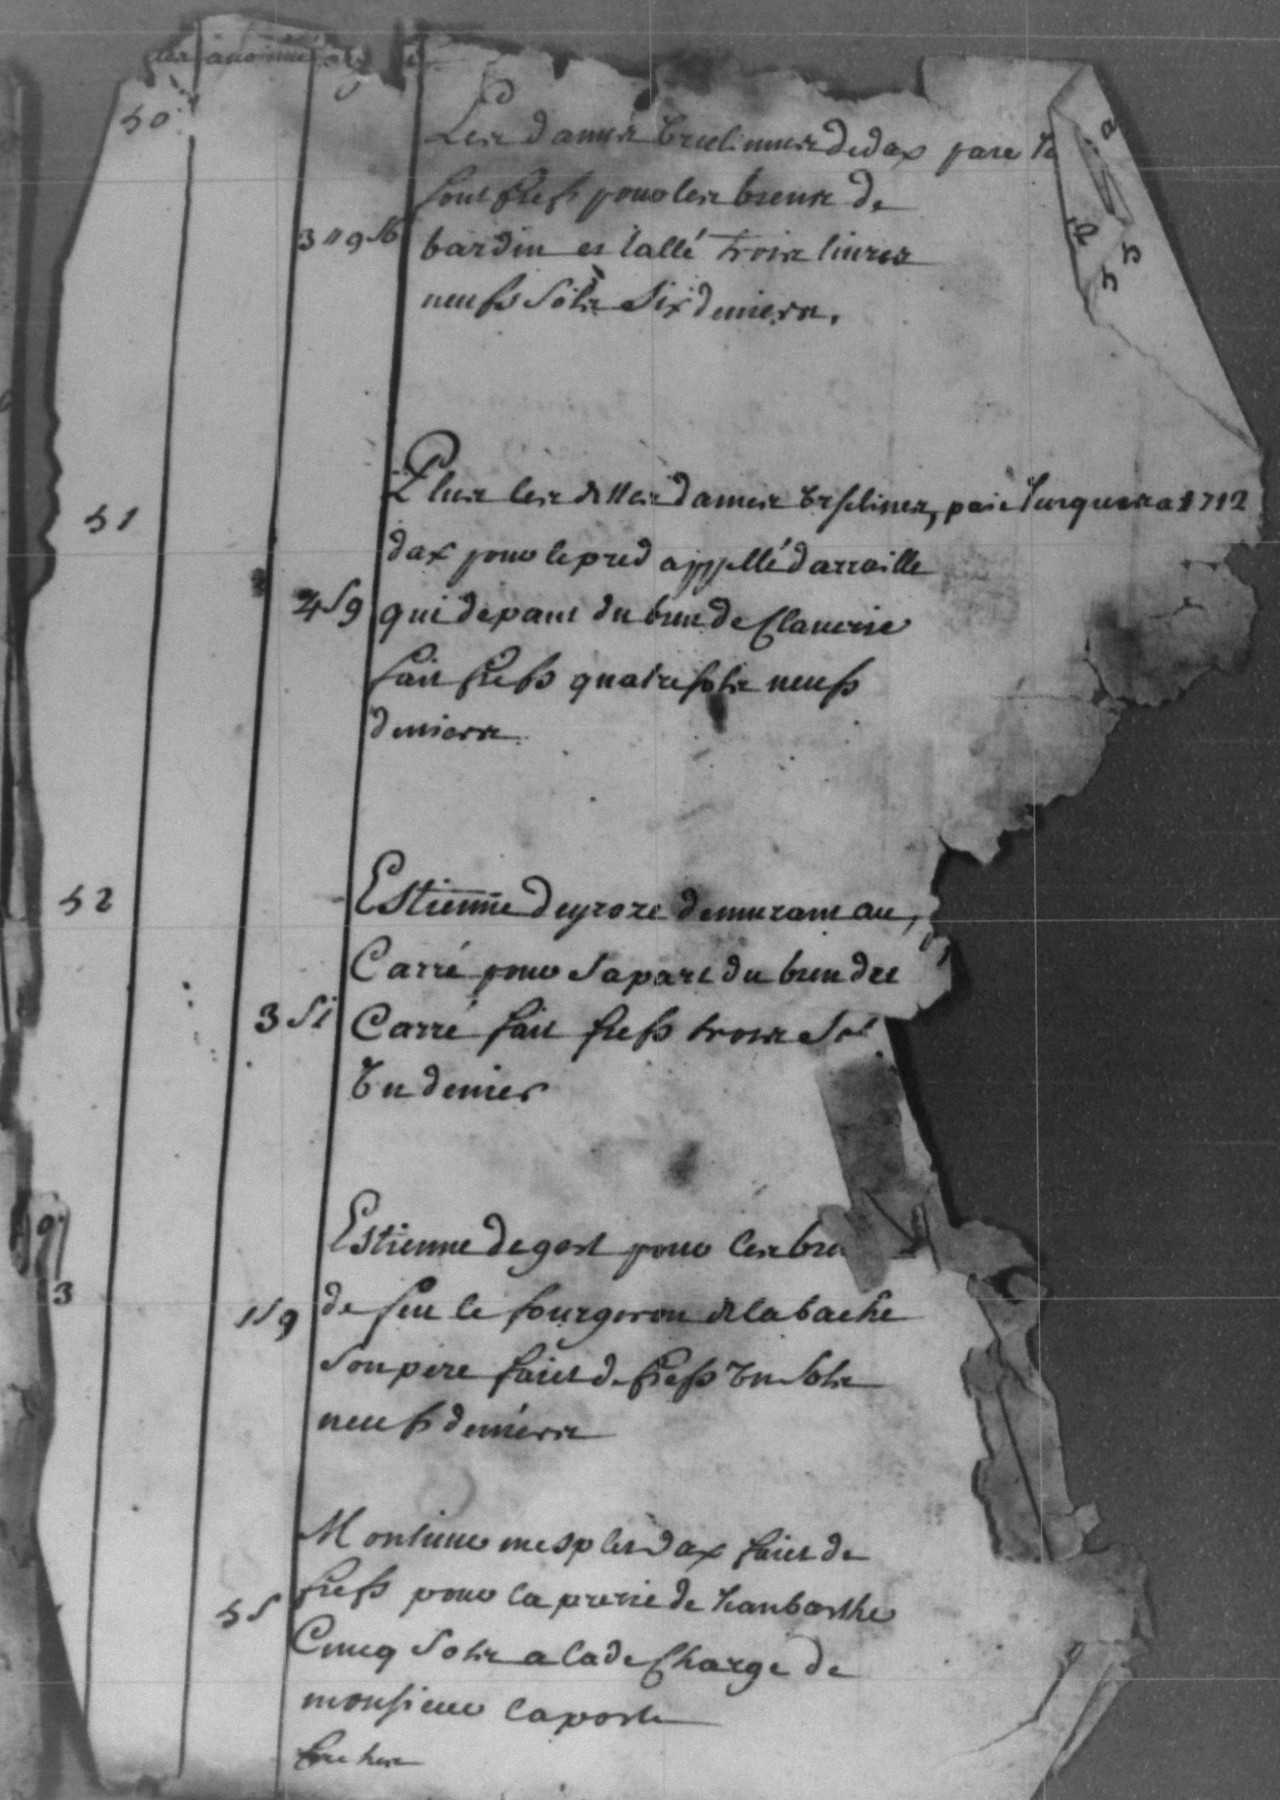 50
Les dames Urselinnes de dax paie
font fiefs pour les biens de
3 " 9 s 6
bardin et lallé trois livres
neufs sols Six deniers.
51
Plus les dittes dames Urselines, paié Jusques a 1712
dax pour le pred appellé darraille
4 s 9
qui depant du bien de Claverie
fait fiefs quatre sols neufs
deniers
52
Estienne deyroze demurant au
Carré pour sa part du bien du
3 s 1
Carré fait fiefs trois
Un denier
Estienne degost pour les
3
1 s 9
de feu le fourgeron de labache
son pere faict de fiefs Un sols
neufs deniers
Monsieur mesples dax faict de
5 s
fiefs pour la prerie de
Cincq Sols a la de Charge de
monsieur laporte